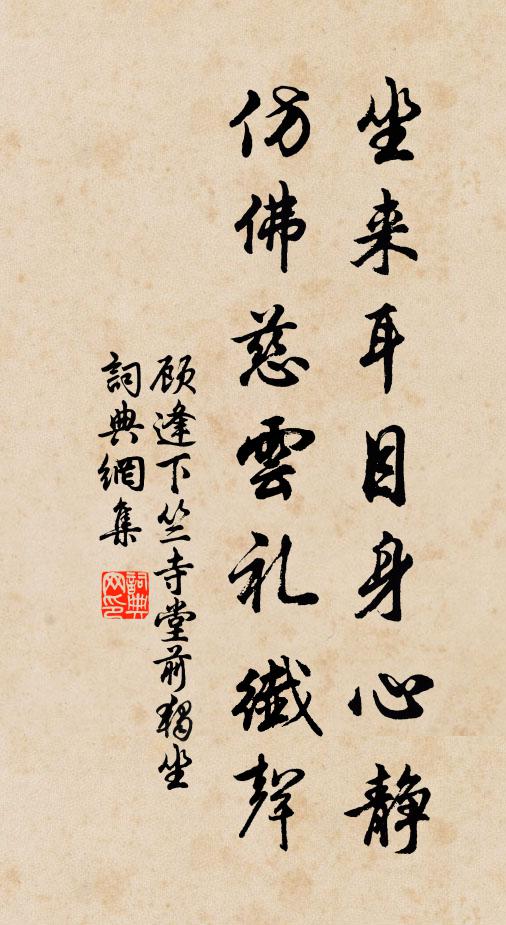 坐来耳目身心静
仿佛慈雲礼纖聲
顾逢下竺寺堂前獨坐
詞典網集
詞典网印